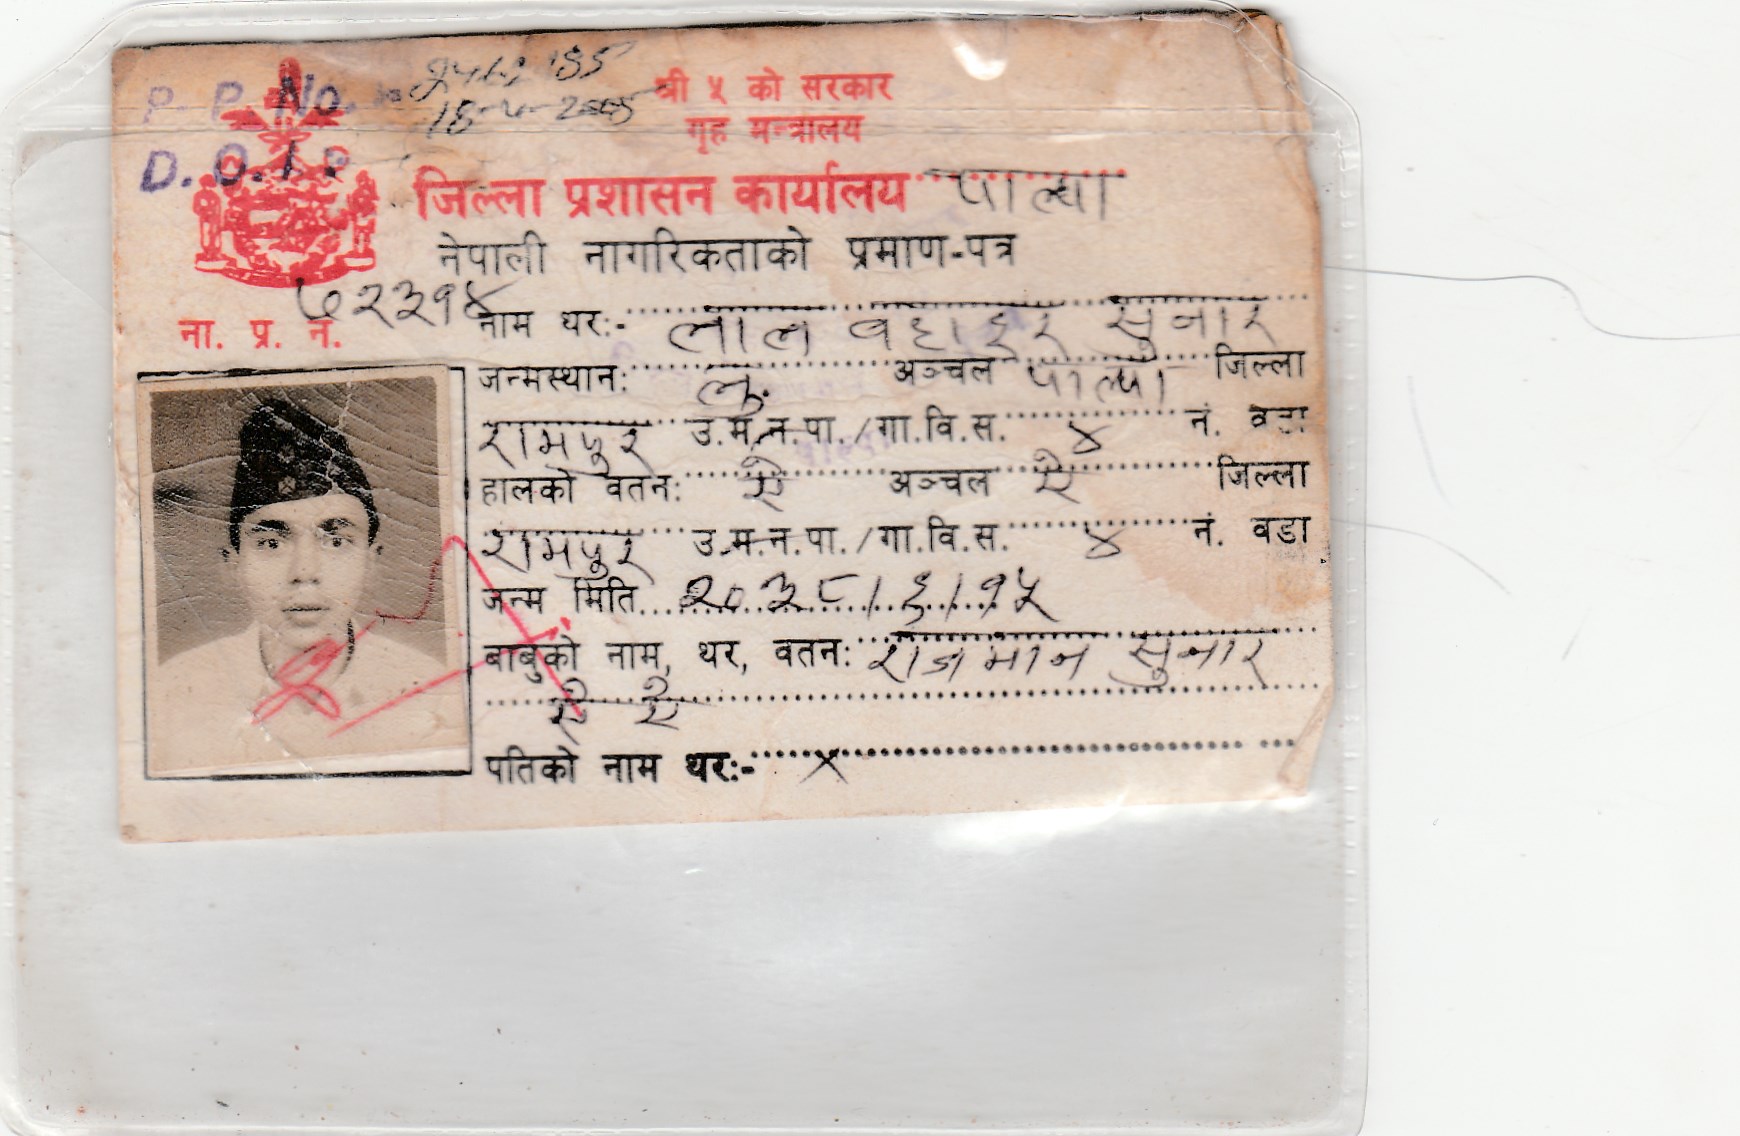 P. P. No.
18-4-2005
D. O. I.
श्री ५ को सरकार
गृह मन्त्रालय
जिल्ला प्रशासन कार्यालय पाल्पा
नेपाली नागरिकताको प्रमाण-पत्र
ना. प्र. न. ७२३१४
नाम थर:- लाल वहादुर सुनार
जन्मस्थान: लु. अञ्चल पाल्पा जिल्ला
रामपुर उ.म.न.पा./गा.वि.स. ४ नं. वडा
हालको वतन: ऐ अञ्चल ऐ जिल्ला
रामपुर उ.म.न.पा./गा.वि.स. ४ नं. वडा
जन्म मिति २०३८/६/१५
बाबुको नाम, थर, वतन: राजमान सुनार
ऐ ऐ
पतिको नाम थर:- X